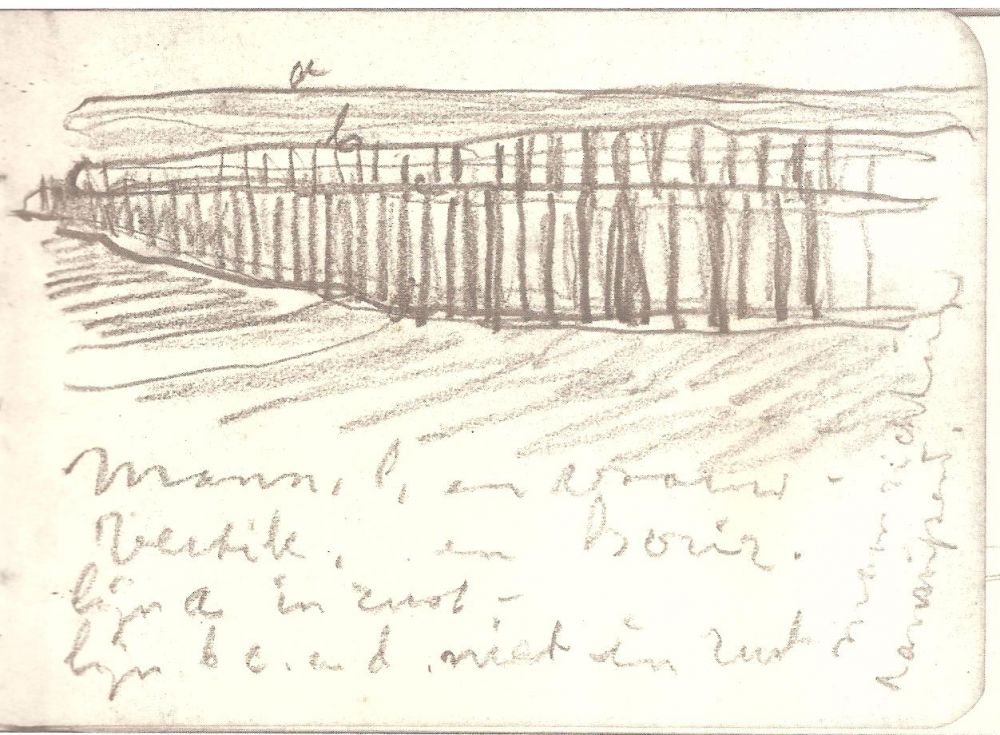 a
b
c
d
Mann. l, en vrouw -
Vertik. en horiz.
lijn a in rust -
lijn b c. en d. niet in rust